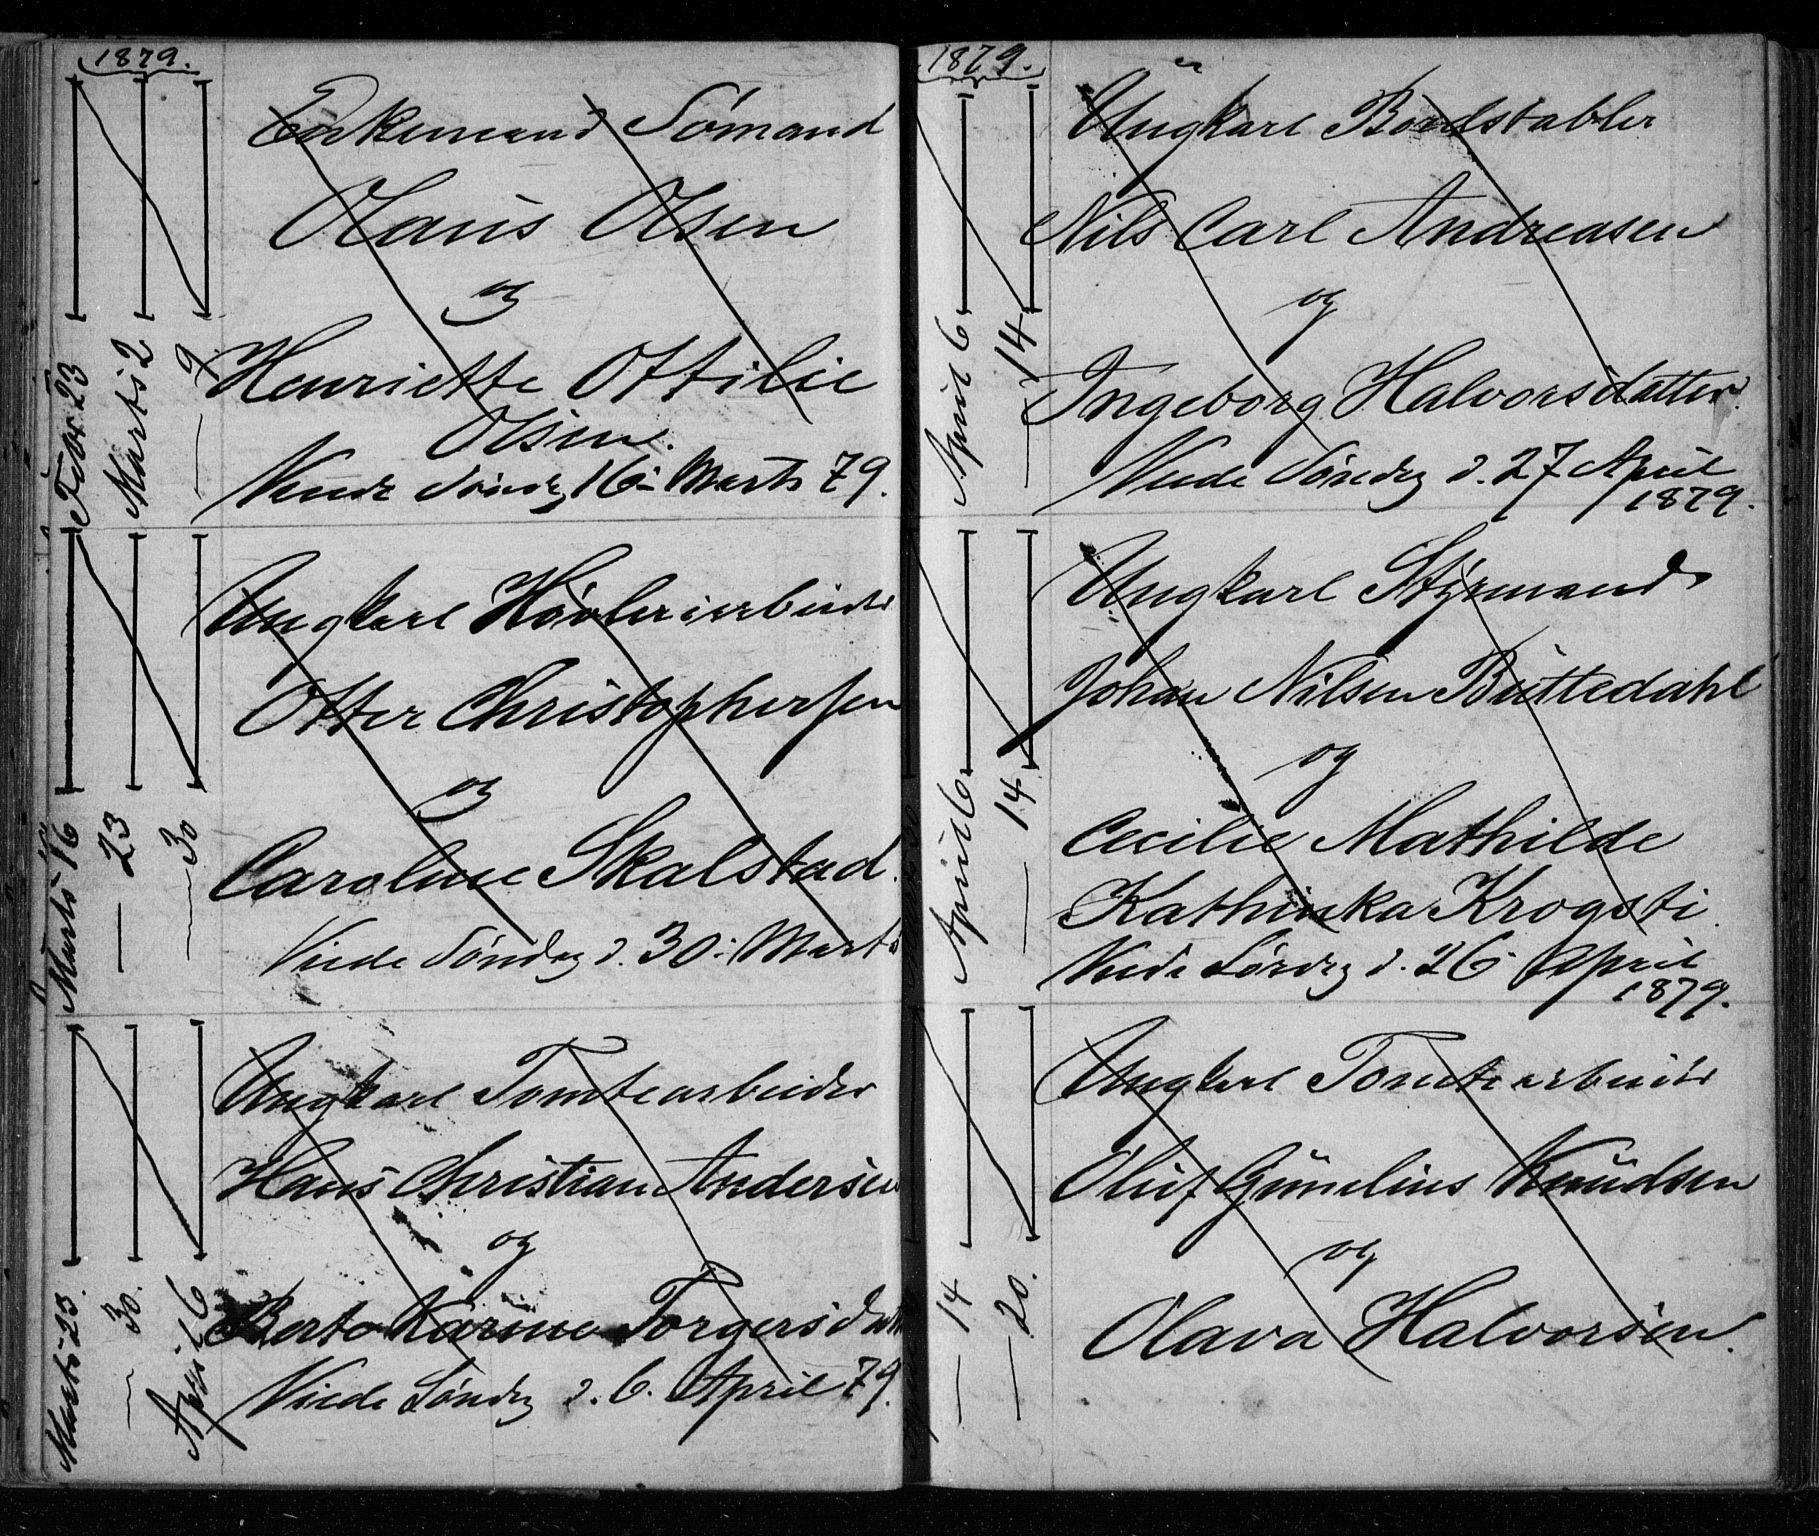 1879.
Febr 23
Marts 2
— 9.
Enkemand Sømand
Olaus Olsen
og
Henriette Ottilie
Olsen.
Viede Søndag 16 Marts 79.
Marts 16
— 23
— 30
Ungkarl Høvleriarbeider
Otter Christophersen
og
Caroline Skalstad.
Viede Søndag d. 30 Marts
Marts 23.
— 30.
April 6
Ungkarl Tomtearbeider
Hans Christian Andersen
og
Berte Karine Torgersdatt
Viede Søndag d. 6. April 79.
1879.
April 6
— 14
Ungkarl Bordstabler
Nils Carl Andreasen
og
Ingeborg Halvorsdatter.
Viede Søndag d. 27 April
1879.
April 6
— 14
Ungkarl Styrmand
Johan Nilsen Buttedahl
og
Cecilie Mathilde
Kathinka Krogsti.
Viede Lørdag d. 26 April
1879.
— 14
— 20.
Ungkarl Tomtearbeider
Oluf Knudsen
og
Olava Halvorsen.